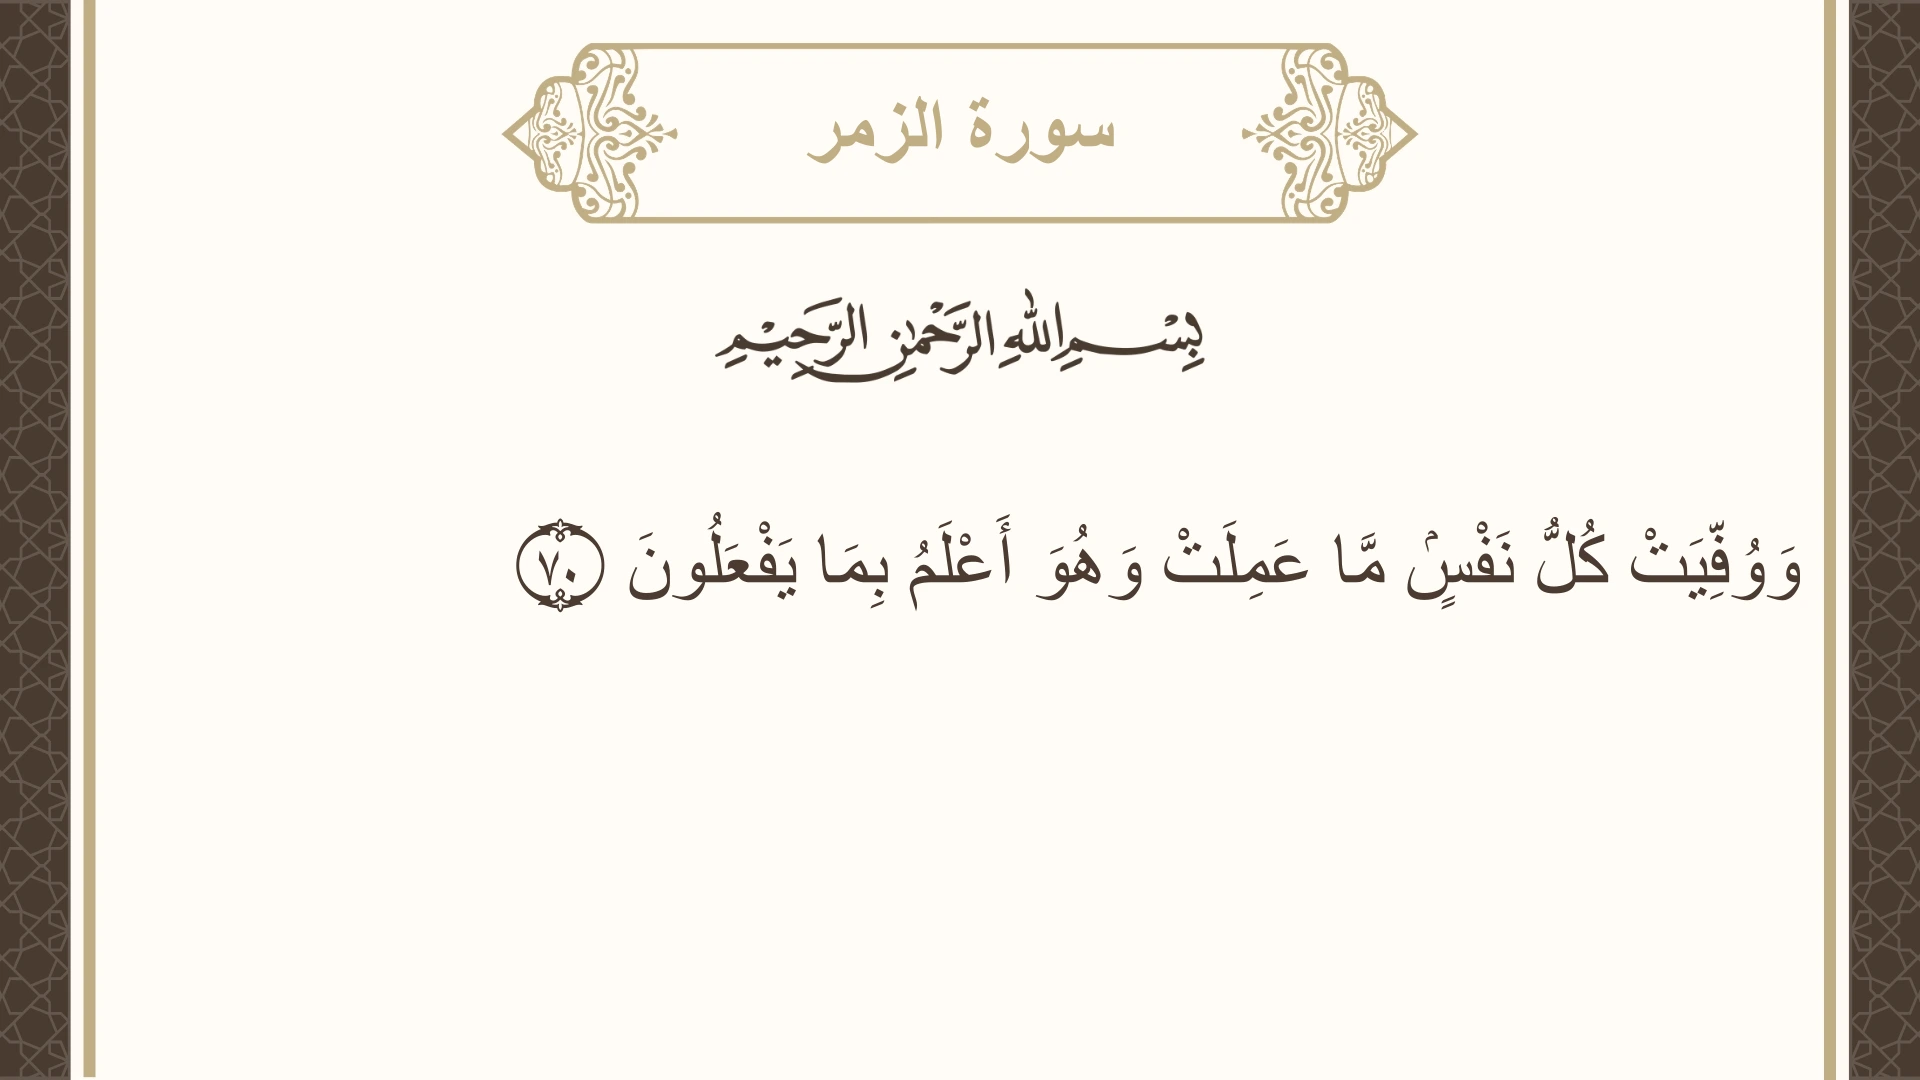 سورة الزمر
بِسْمِ اللهِ الرَّحْمٰنِ الرَّحِيْمِ
وَوُفِّيَتْ كُلُّ نَفْسٍۢ مَّا عَمِلَتْ وَهُوَ أَعْلَمُ بِمَا يَفْعَلُونَ ٧٠